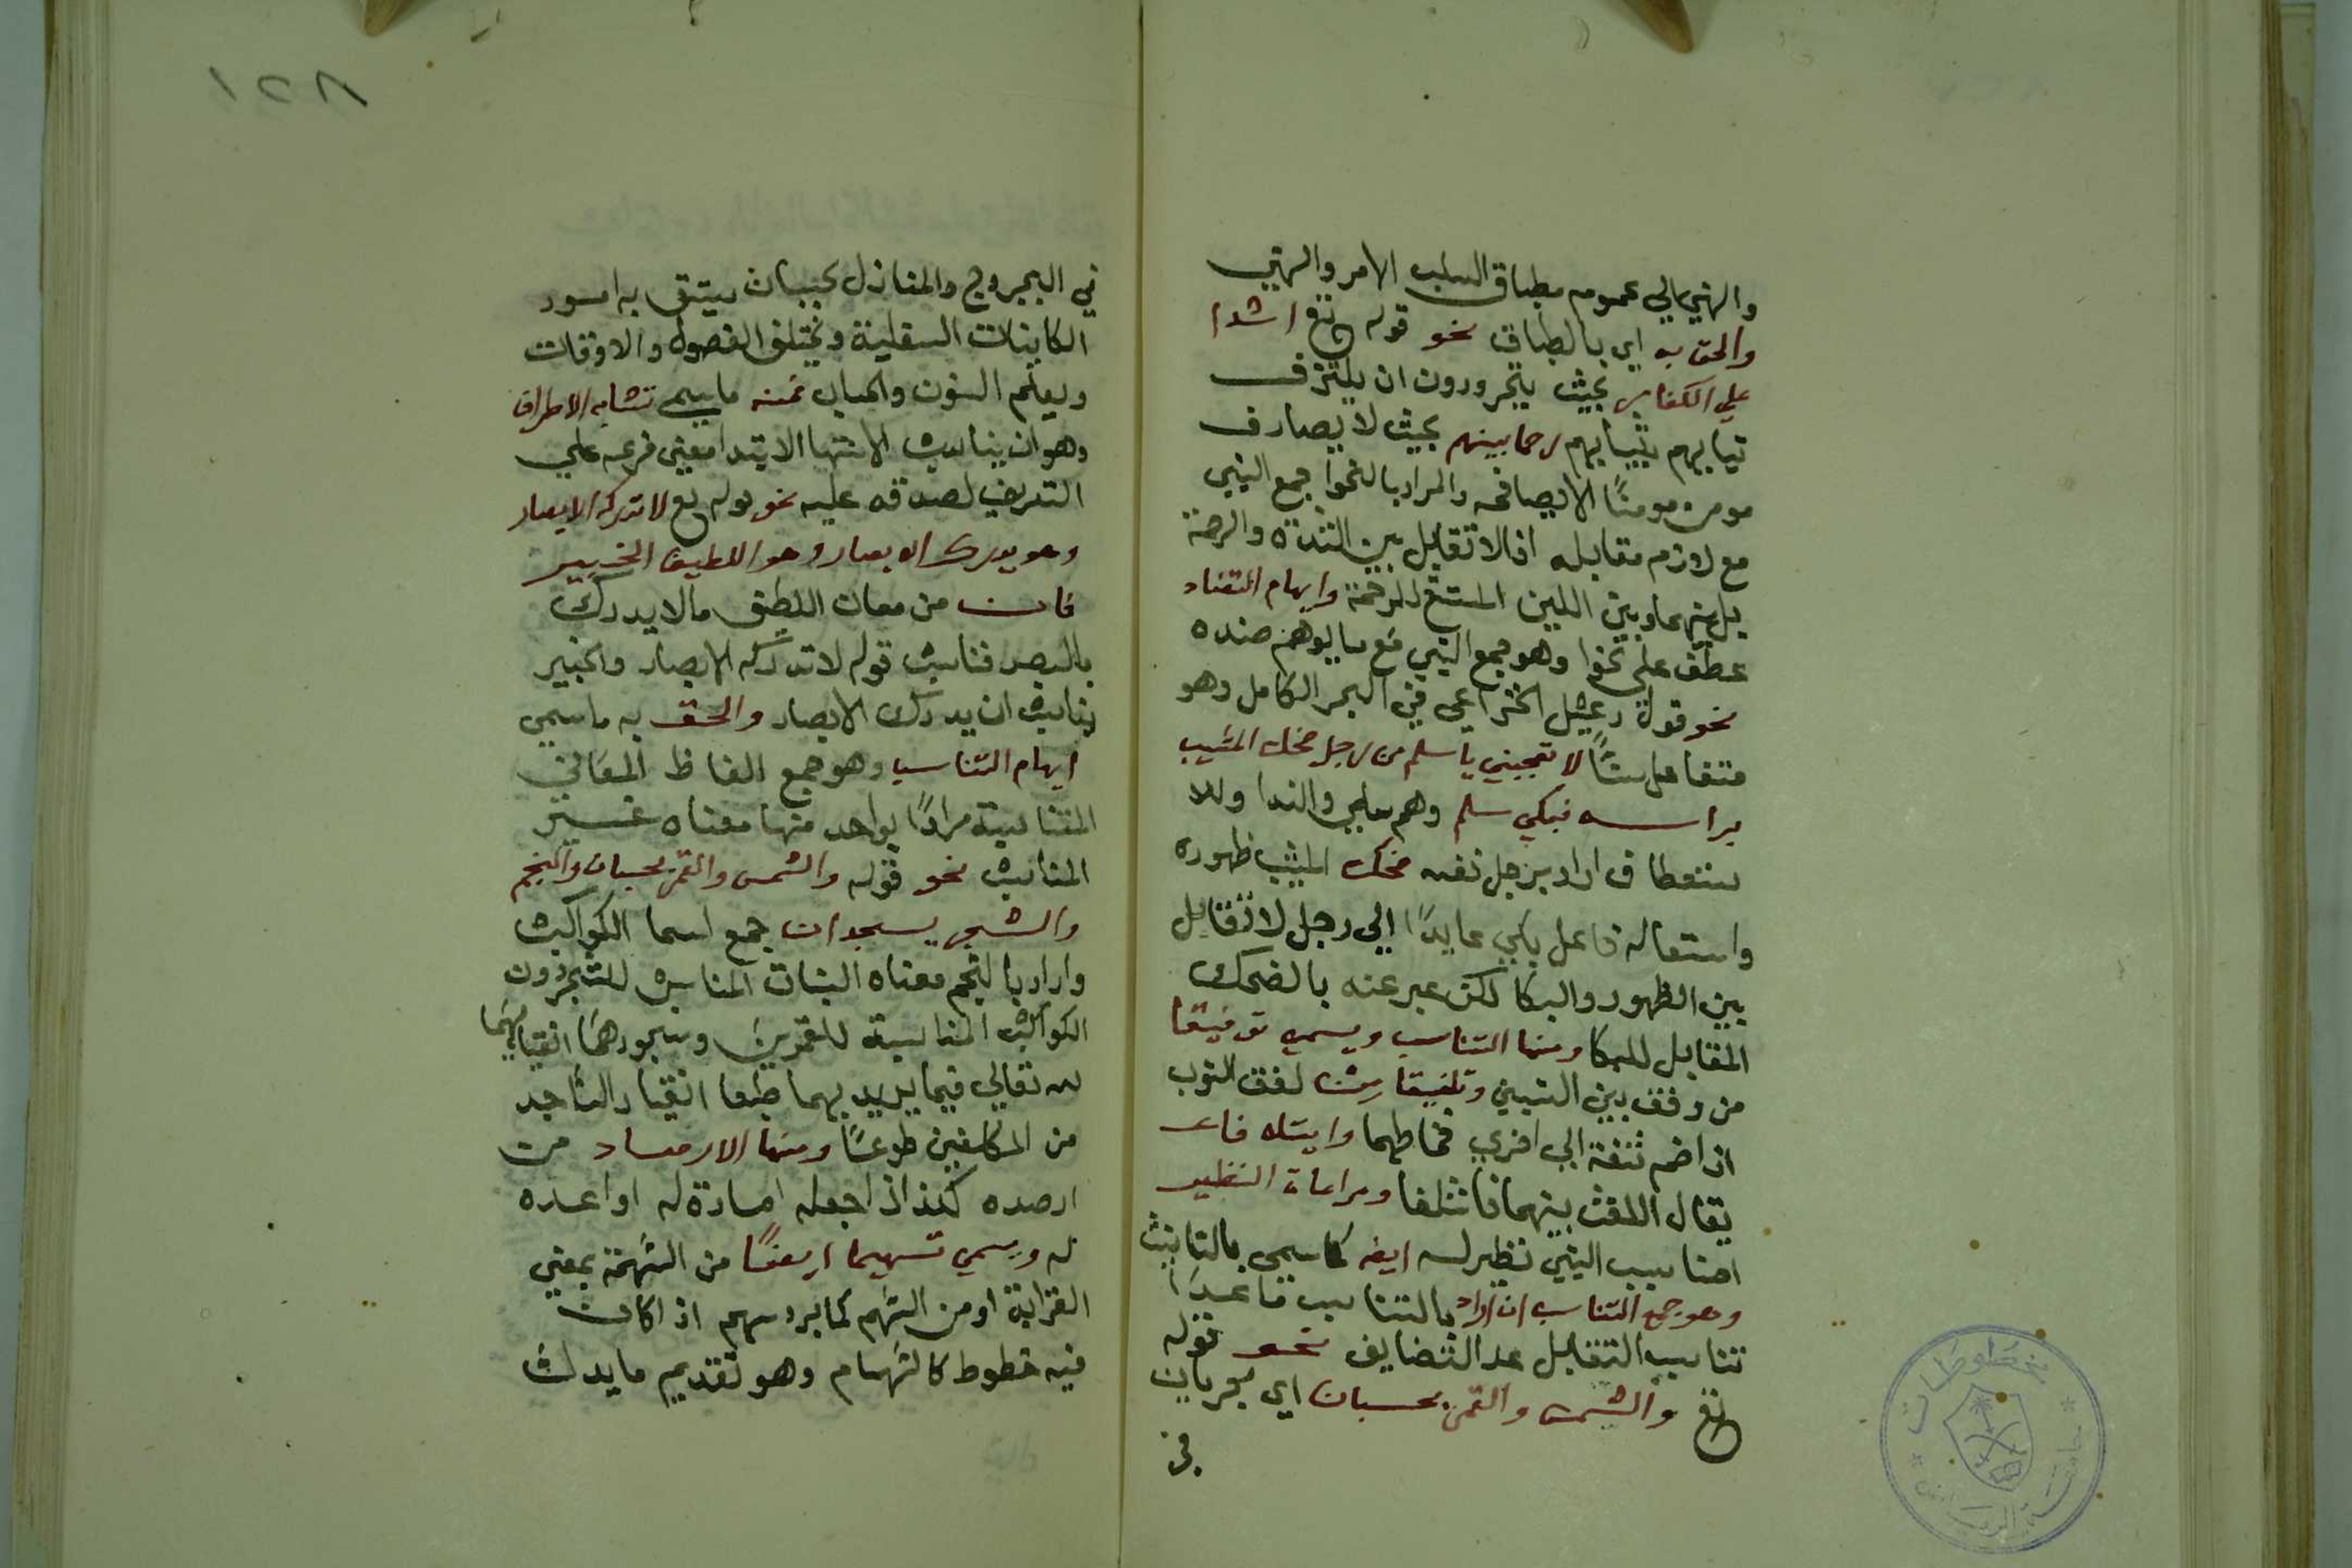 والنهي الي عموم مطباق السلب الامر والنهي
والحق به اي بالطباق نحو قوله تع اشدا
علي الكفار بحيث يتجردون ان يلتزف
ثيابهم بثيابهم رحما بينهم بحيث لا يصادف
مومن مومنًا الا يصافحه والمراد بالنحو جمع الشي
مع لازم مقابله اذ لا تقابل بين الشدة والرحمة
بل بينهما وبين اللين المستع للرحمة وايهام التضاد
عطف علي نحو وهو جمع الشي مع ما يوهم ضده
نحو قول دعبل الخزاعي في البحر الكامل وهو
متفاعل ستًا لا تعجبي يا سلم من رجل ضحك المشيب
براسه فبكي سلم وهم سلمي والندا وللا
ستعطاف اراد برجل نفسه ضحك المشيب ظهوره
واستعاله فاعل بكي عايدًا الي رجل لا تقابل
بين الظهور والبكا لكن عبر عنه بالضحك
المقابل للبكا ومنها التناسب ويسمي توفيقا
من وفق بين الشيين وتلفيقا من لفق الثوب
اذا ضم شقة الي اخري فخاطهما وايتلافا
يقال اللفث بينهما فائتلفا ومراعاة النظير
اصنا سبب الشي نظير له ايضه كما سمي بالتانيث
وهو جمع التناسب ان اراد بالتناسب ما عدا
تناسب التقابل عد التضايف نحو قوله
تع والشمس والقمر بحسبان اي يجريان
في
في البروج والمنازل بحسبان يتسق به امور
الكاينات السفلية وتختلف الفصول والاوقات
ويعلم السنون والحساب فمنه ما يسمي تشابه الاطراف
وهو ان يناسب الانتها الابتدا معني فرعه علي
التعريف لصدقه عليه نحو قوله تع لا تدركه الابصار
وهو يدرك الابصار وهو اللطيف الخبير
فان من معان اللطيف ما لا يدرك
بالبصر فناسب قوله لا تدركه الابصار والخبير
يناسب ان يدرك الابصار والحق به ما سمي
ايهام التناسب وهو جمع الفاظ المعاني
المتناسبة مرادًا بواحد منها معناه غير
المناسب نحو قوله والشمس والقمر بحسبان والنجم
والشجر يسجدان جمع اسما الكواكب
واراد بالنجم معناه النبات المناسب للشجر دون
الكواكب المناسبة للقمرين وسجودهما انقيادهما
لله تعالي فيما يريد بهما طبعا انقياد الساجد
من المكلفين طوعًا ومنها الارصاد من
ارصده كذا اذا جعله امارة له او اعده
له ويسمي تسهيما ايضًا من السهمة بمعني
القرابة او من السهم كما برد سهم اذا كان
فيه خطوط كالسهام وهو تقديم ما يدل
١٢٨
مخطوطات